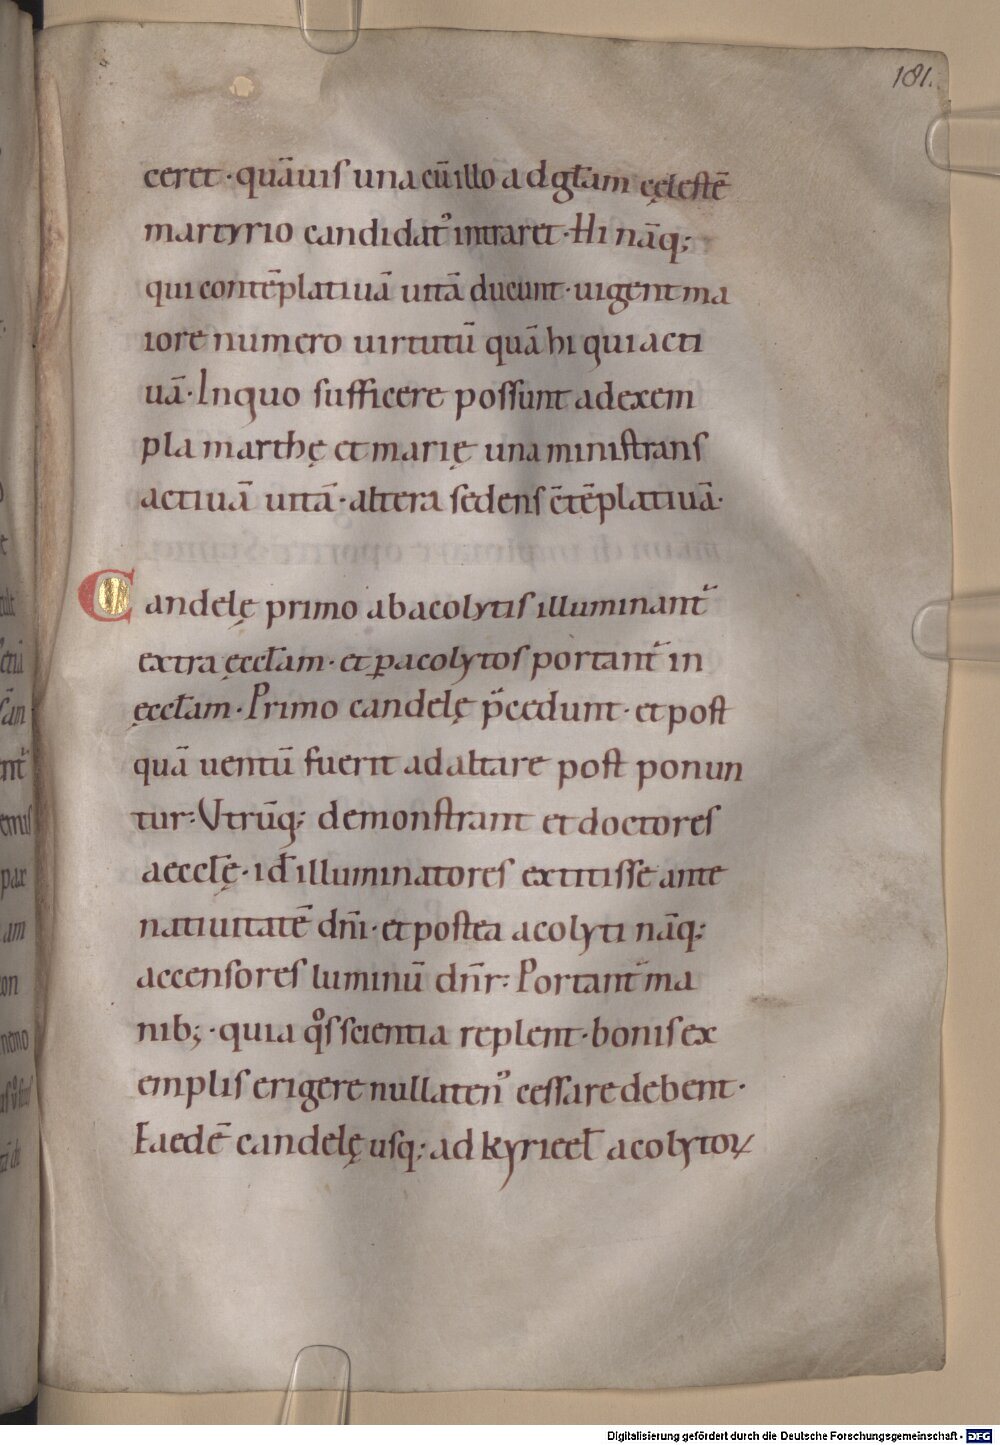 181.
ceret · quāuis una cū illo ad gl̄am cęlestē
martyrio candidat᾽ intraret · Hi nāq;
qui contēplatiuā uitā ducunt · uigent ma
iore numero uirtutū quā hi qui acti
uā · In quo sufficere possunt ad exem
pla marthę et marię una ministrans
actiuā uitā · altera sedens c̄tēplatiuā ·
Candelę primo ab acolytis illuminant᷑
extra ęccl̄am · et ꝑ acolytos portant᷑ in
ęccl̄am · Primo candelę p̄cedunt · et post
quā uentū fuerit ad altare post ponun
tur : Vtrūq; demonstrant et doctores
aeccl̄ę · id᷑ illuminatores extitisse ante
natiuitatē dn̄i · et postea acolyti nāq;
accensores luminū dn̄r : Portant᷑ ma
nib; · quia qͦs scientia replent · bonis ex
emplis erigere nullaten᾽ cessare debent ·
Eaedē candelę usq; ad kyrieel̄ acolytoꝝ
Digitalisierung gefördert durch die Deutsche Forschungsgemeinschaft - DFG